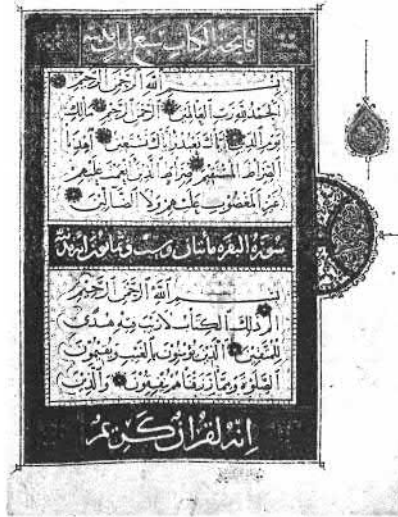 فاتحة الكتاب سبع ايات
بِسْمِ اللَّهِ الرَّحْمَنِ الرَّحِيمِ
الْحَمْدُ لِلَّهِ رَبِّ الْعَالَمِينَ الرَّحْمَنِ الرَّحِيمِ مَالِكِ
يَوْمِ الدِّينِ إِيَّاكَ نَعْبُدُ وَإِيَّاكَ نَسْتَعِينُ اهْدِنَا
الصِّرَاطَ الْمُسْتَقِيمَ صِرَاطَ الَّذِينَ أَنْعَمْتَ عَلَيْهِمْ
غَيْرِ الْمَغْضُوبِ عَلَيْهِمْ وَلَا الضَّالِّينَ
سورة البقره مائتان وست وثمانون ايه
بِسْمِ اللَّهِ الرَّحْمَنِ الرَّحِيمِ
الم ذَلِكَ الْكِتَابُ لَا رَيْبَ فِيهِ هُدًى
لِلْمُتَّقِينَ الَّذِينَ يُؤْمِنُونَ بِالْغَيْبِ وَيُقِيمُونَ
الصَّلَوةَ وَمِمَّا رَزَقْنَاهُمْ يُنْفِقُونَ وَالَّذِينَ
انه لقران كريم